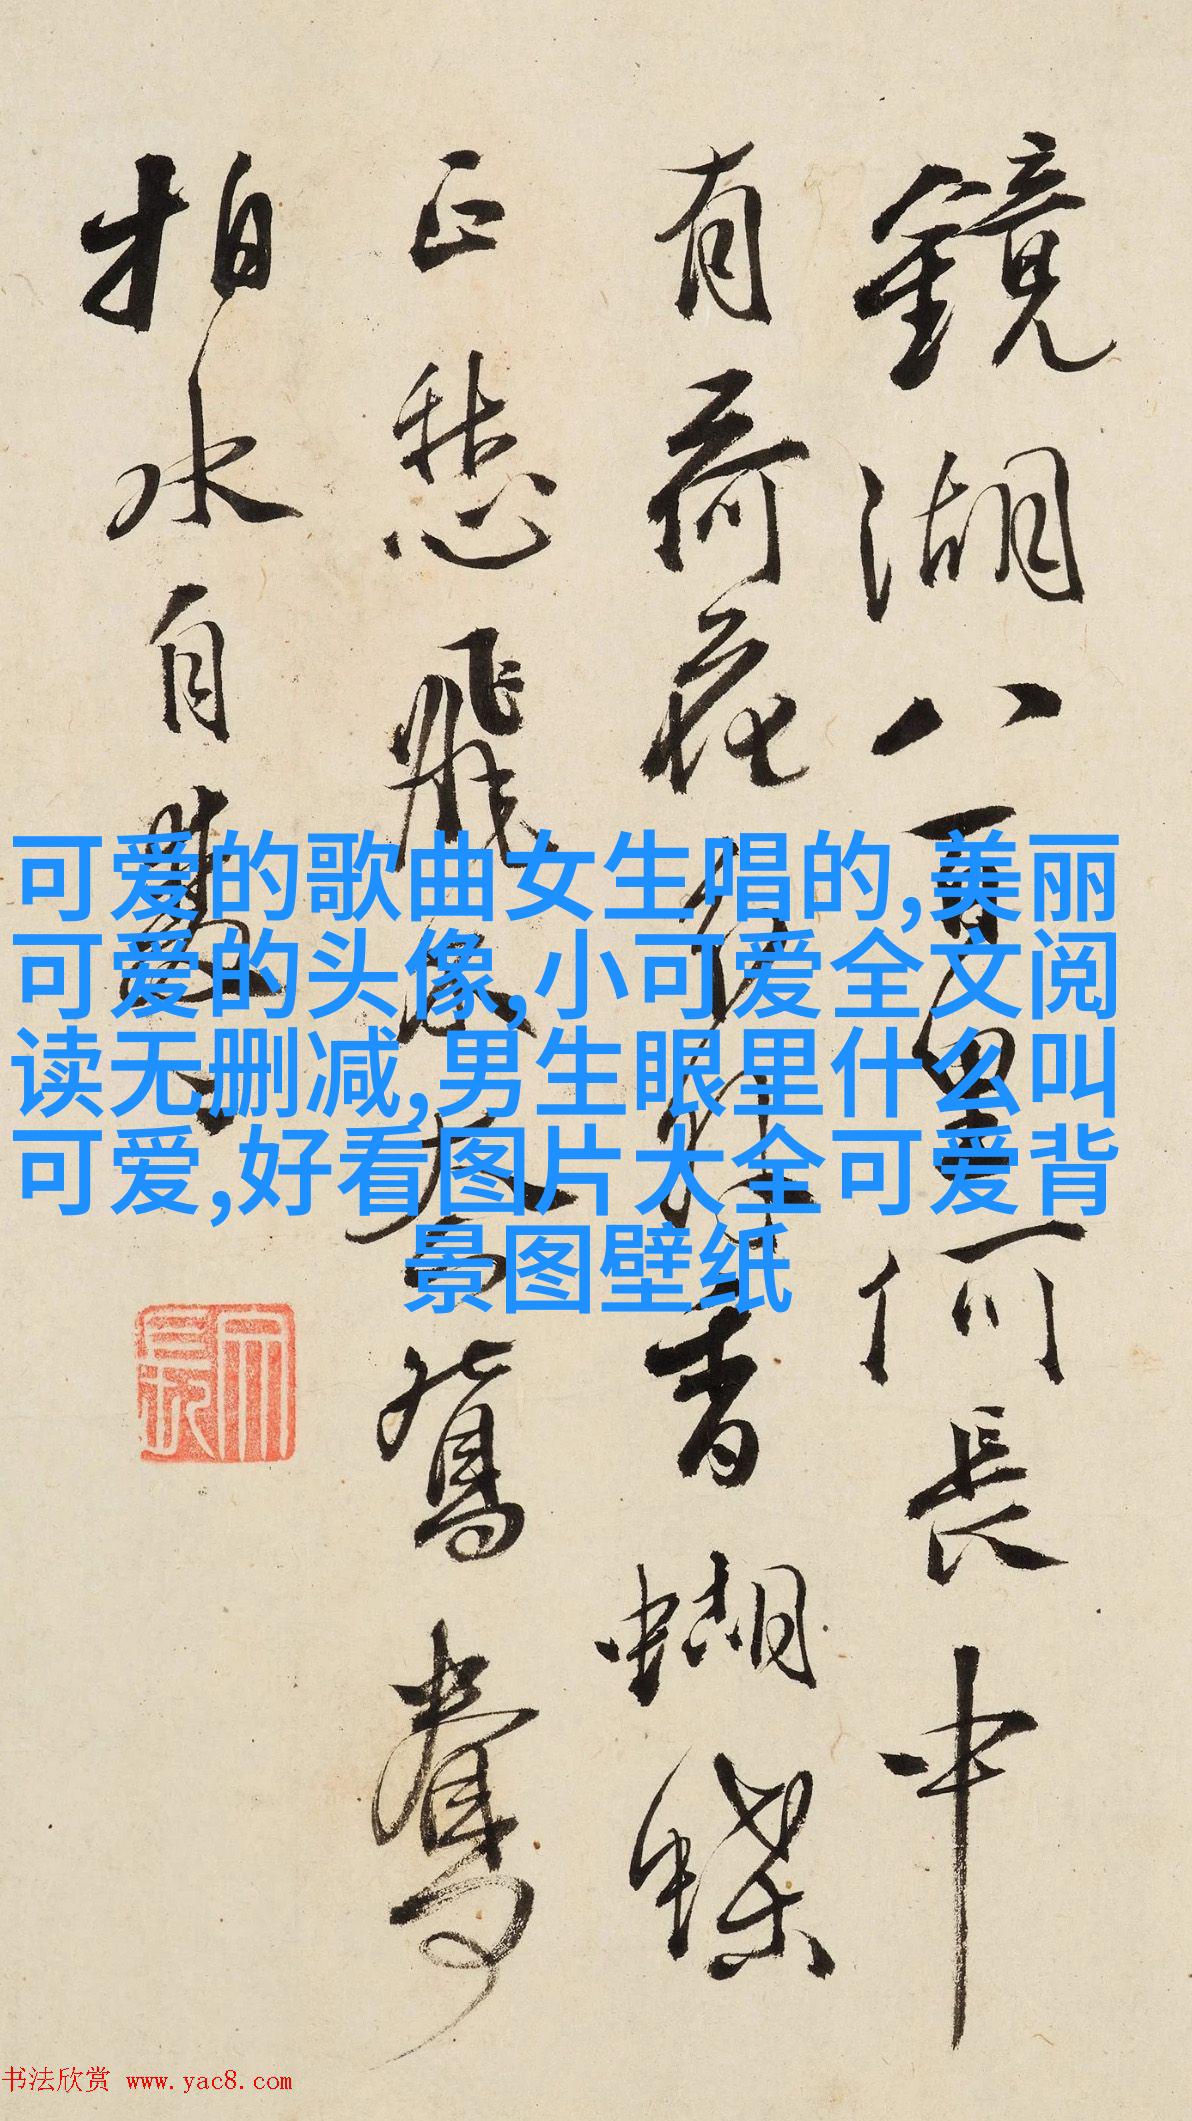 鏡湖八百里何長中
有荷花分外香蝴蝶
正愁飛不過鴛鴦
拍水自雙〻
可爱的歌曲女生唱的,美丽
可爱的头像,小可爱全文阅
读无删减,男生眼里什么叫
可爱,好看图片大全可爱背
景图壁纸
书法欣赏 www.yac8.com